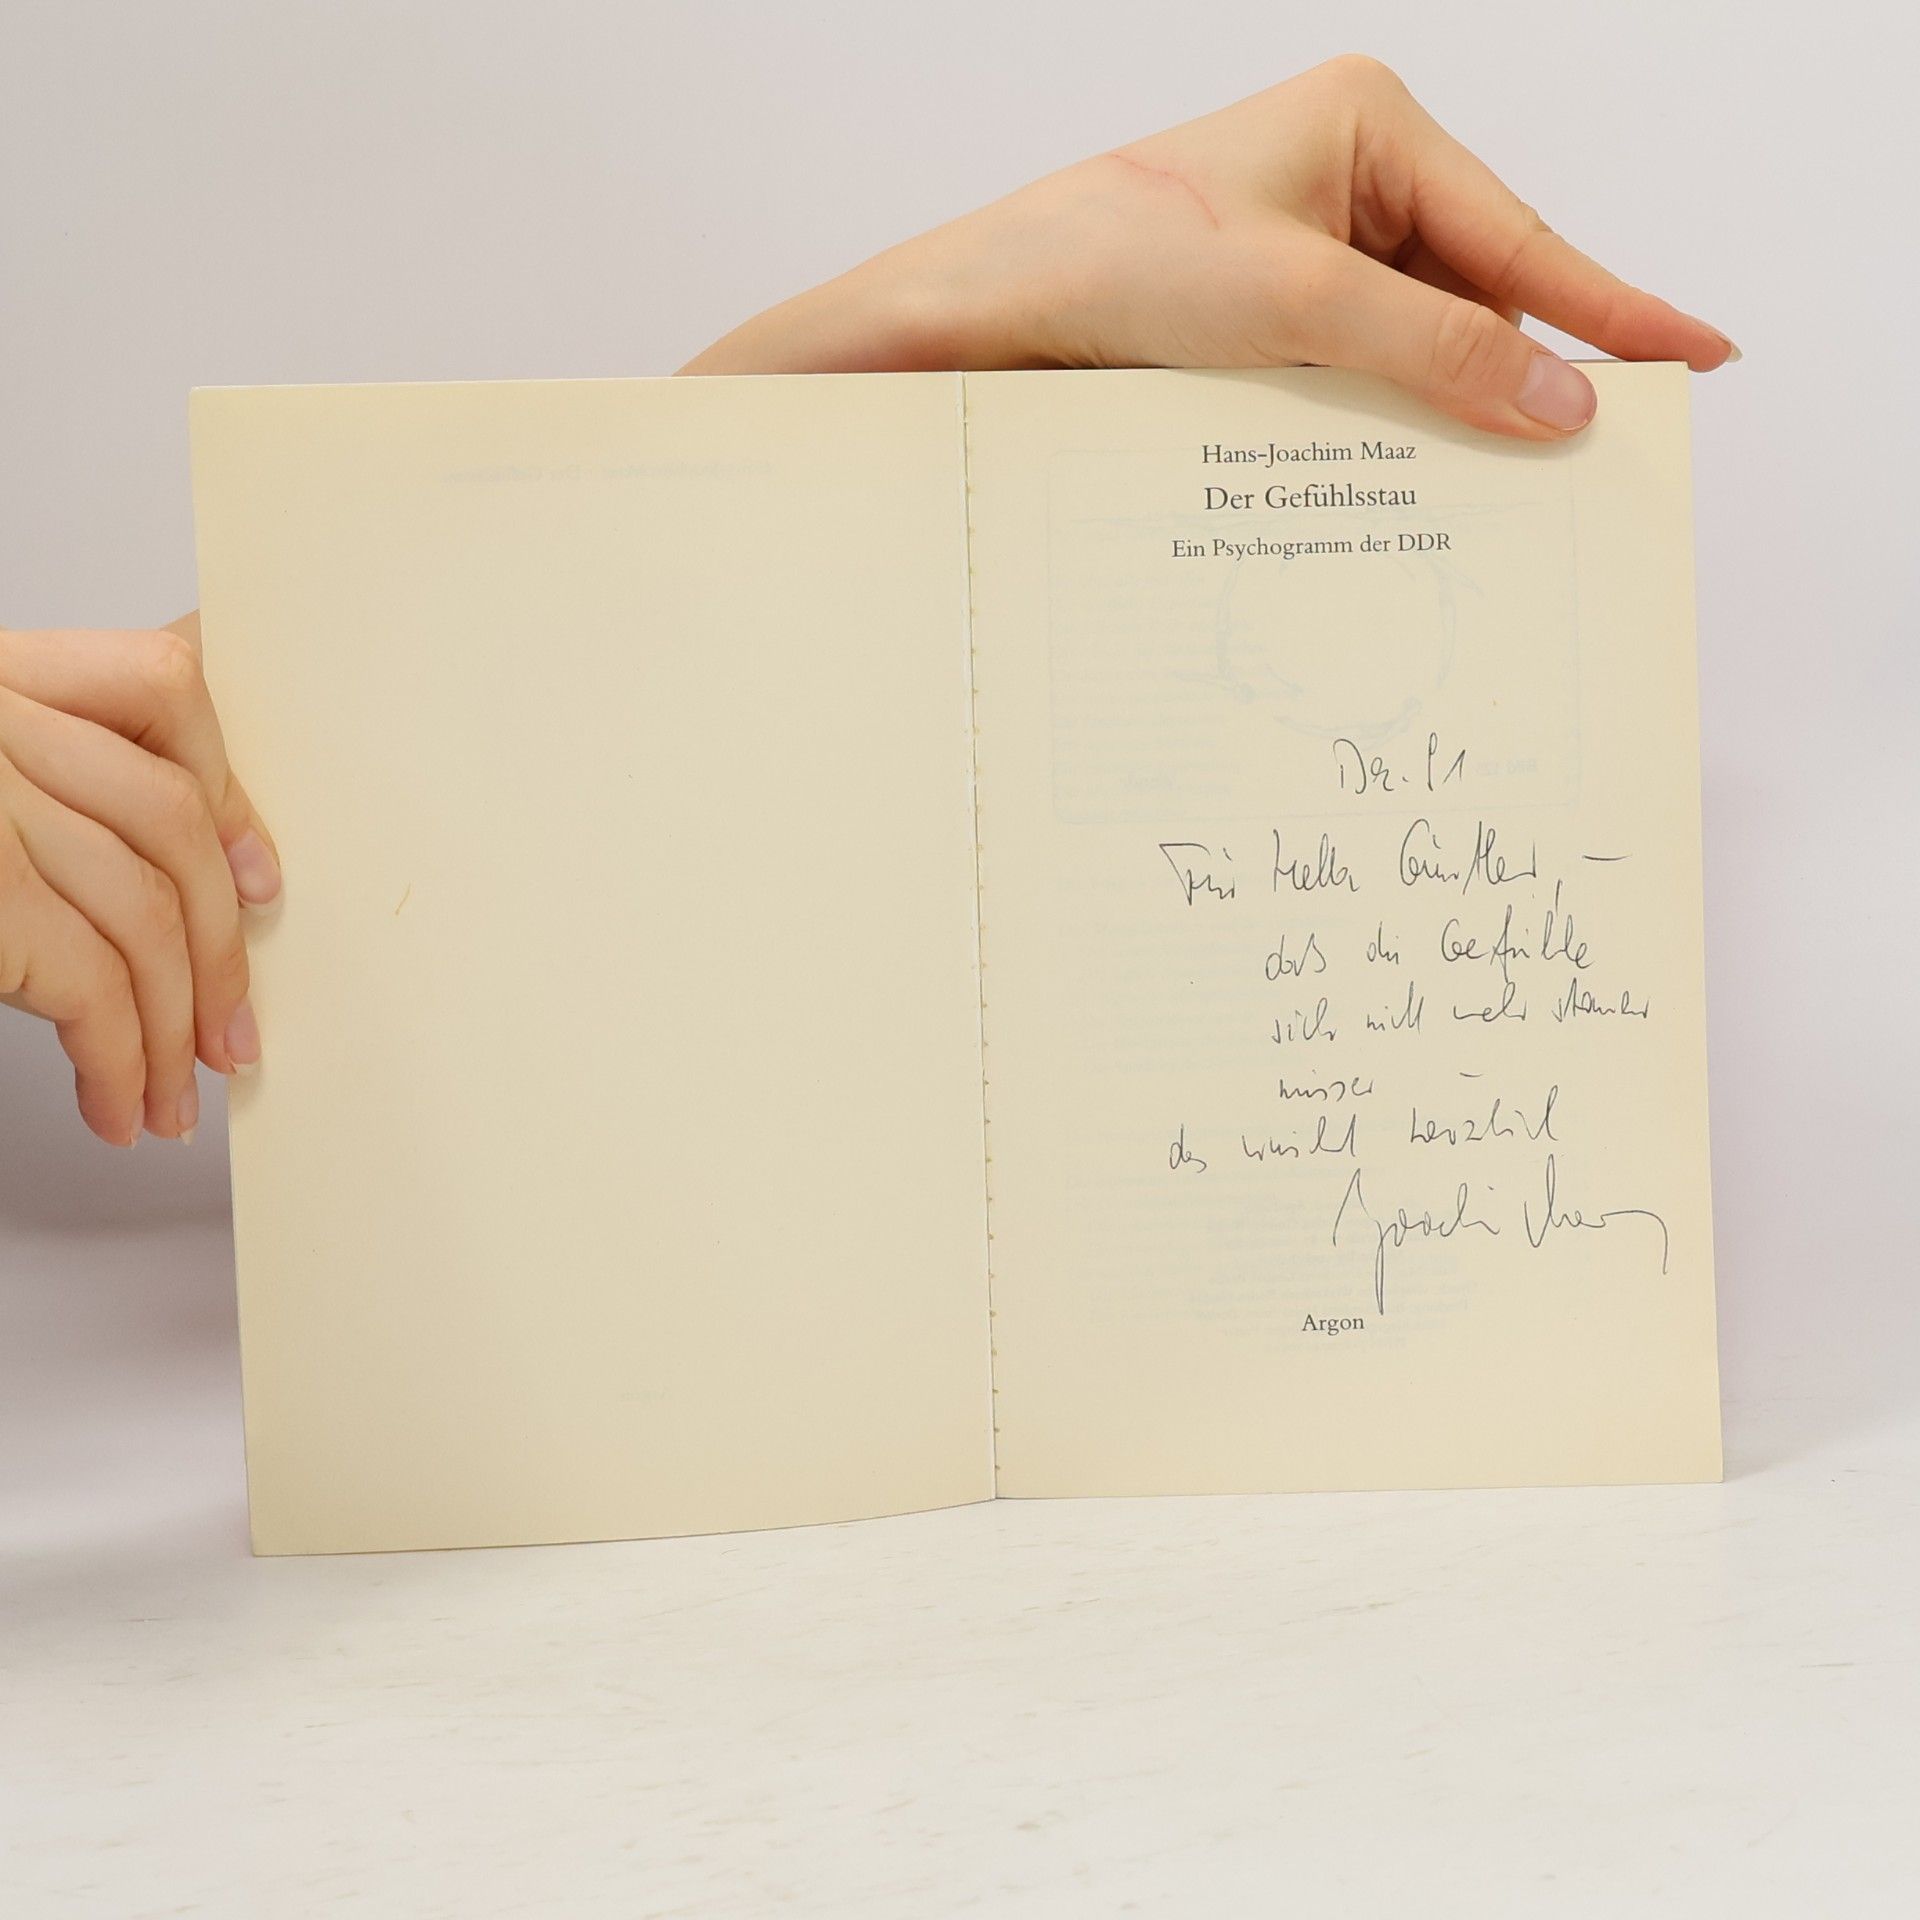 Hans-Joachim Maaz
Der Gefühlsstau
Ein Psychogramm der DDR
Dez. 91
Für Hella Günther, –
daß die Gefühle
sich nicht mehr stauen
müssen –
das wünscht herzlich
Joachim Maaz
Argon